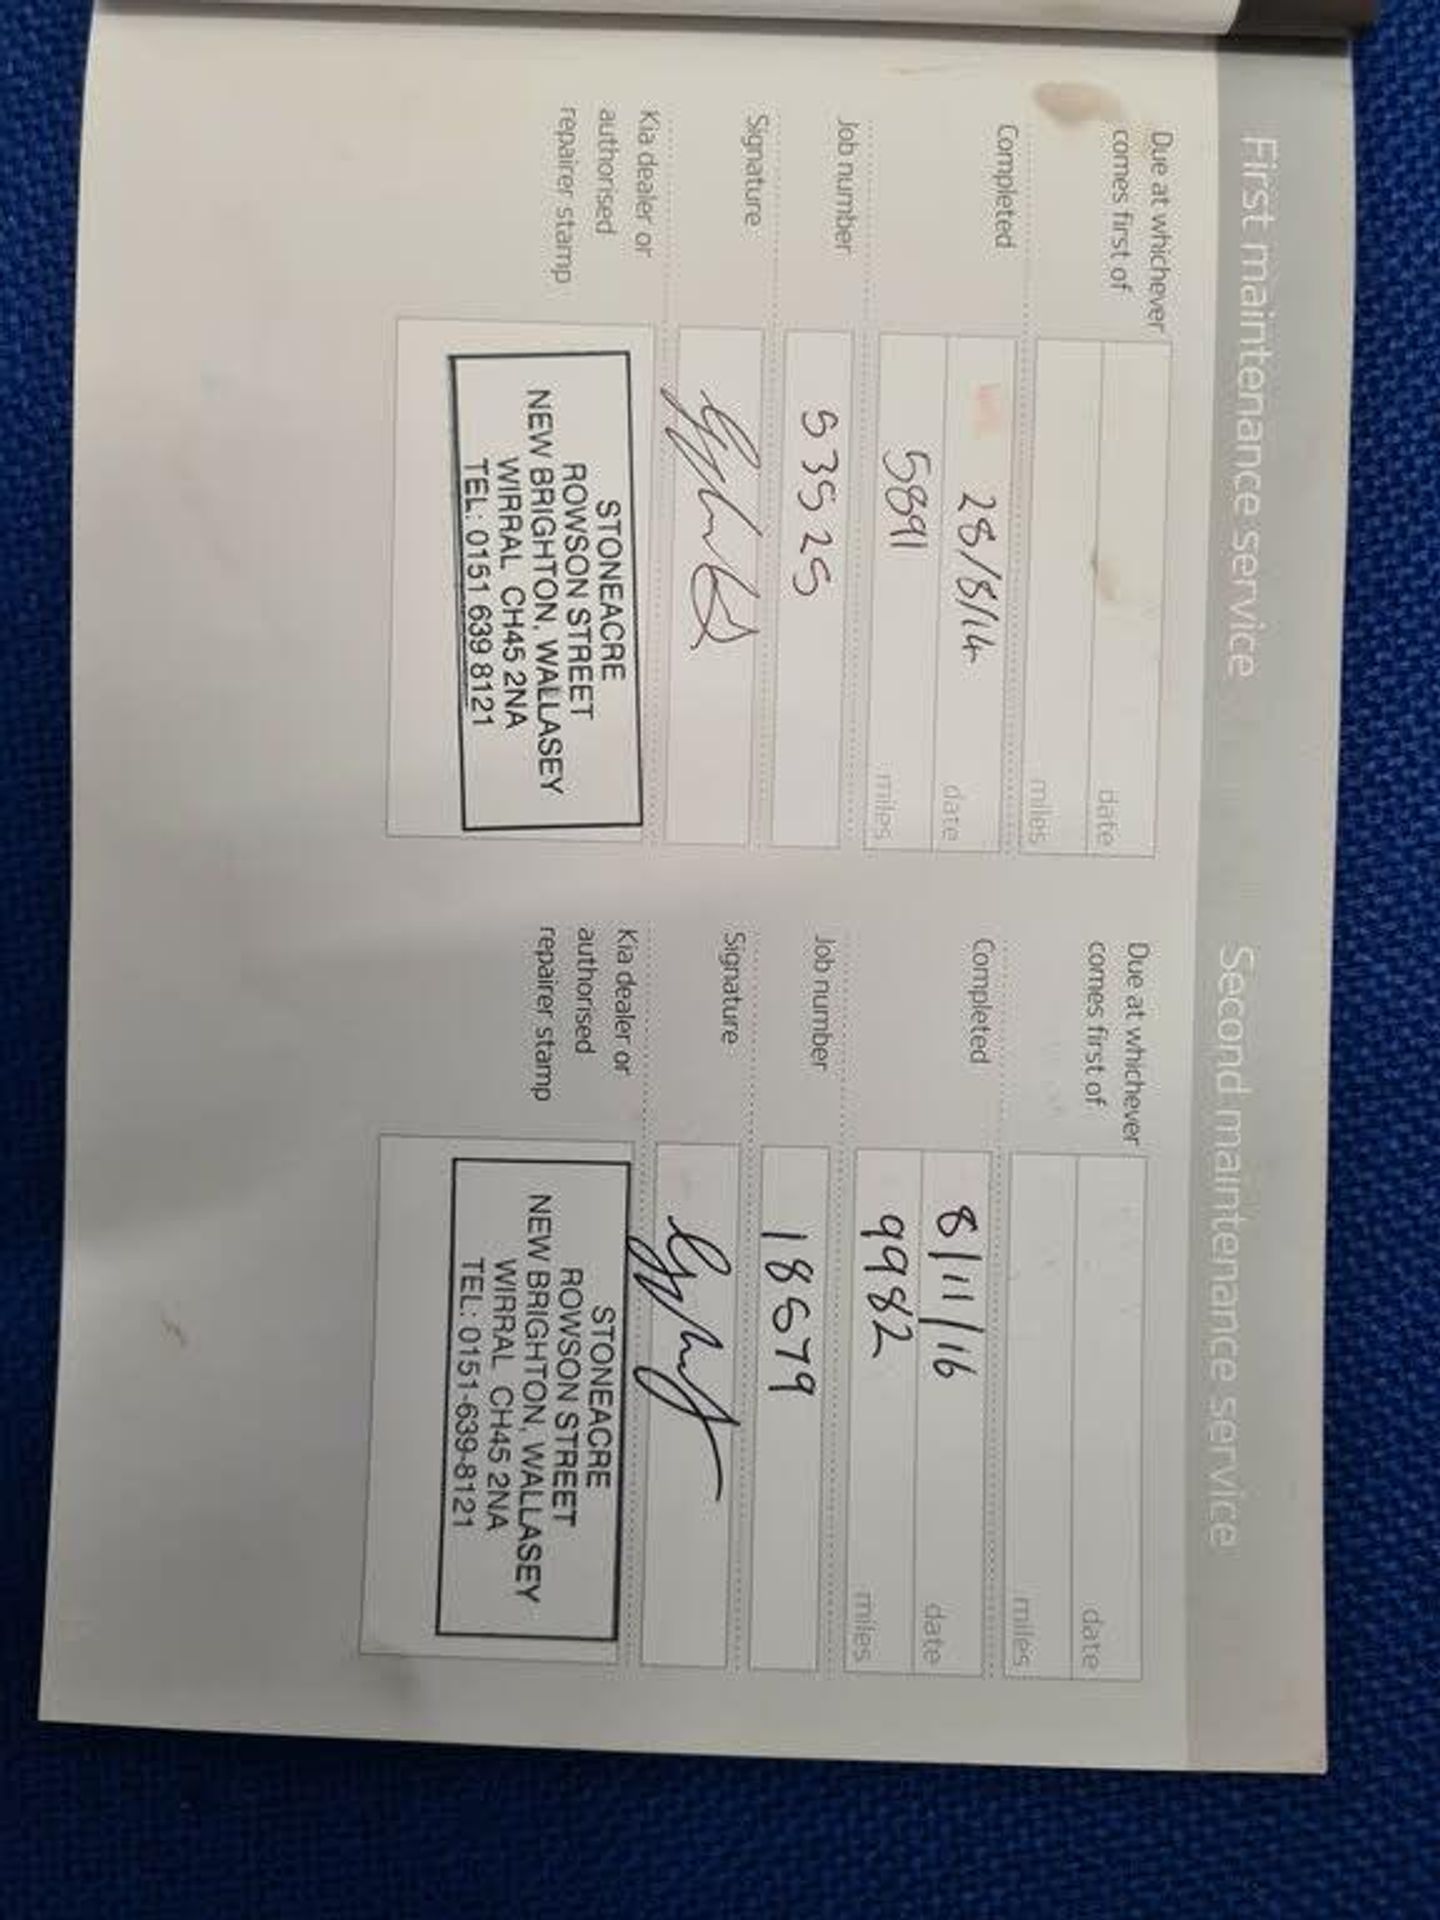 First maintenance service
Due at whichever
comes first of
date
miles
Completed
28/8/14 date
5891 miles
Job number
53525
Signature
Kia dealer or
authorised
repairer stamp
STONEACRE
ROWSON STREET
NEW BRIGHTON, WALLASEY
WIRRAL CH45 2NA
TEL: 0151 639 8121
Second maintenance service
Due at whichever
comes first of
date
miles
Completed
8/11/16 date
9982 miles
Job number
18679
Signature
Kia dealer or
authorised
repairer stamp
STONEACRE
ROWSON STREET
NEW BRIGHTON, WALLASEY
WIRRAL CH45 2NA
TEL: 0151-639-8121